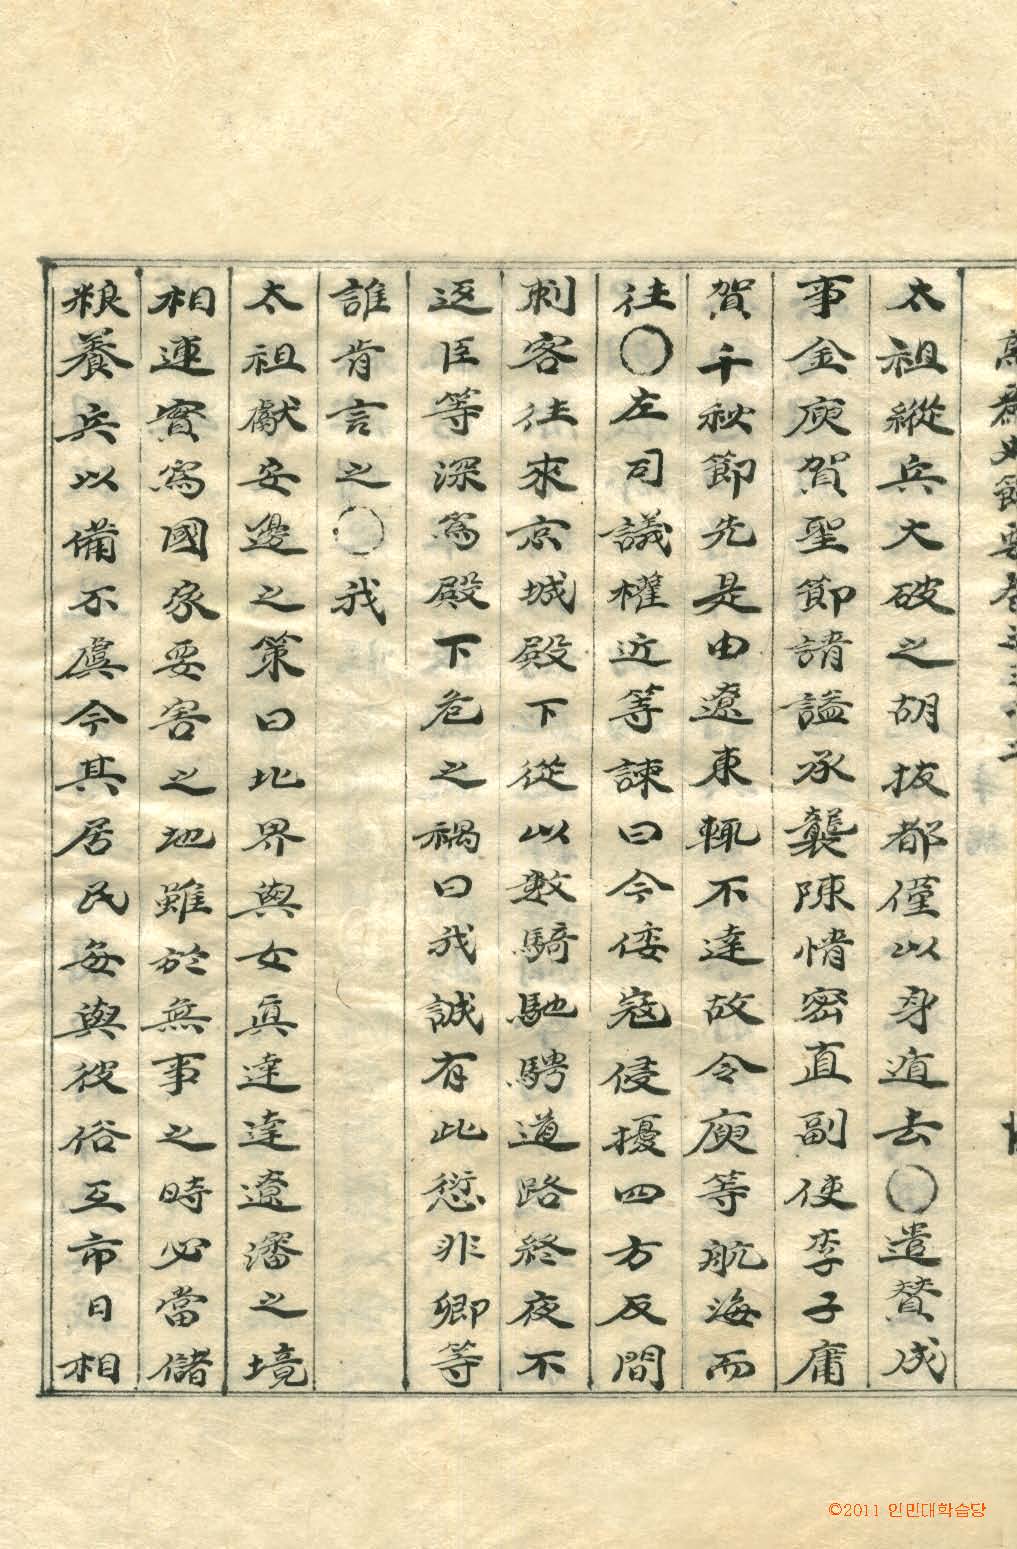 太祖縱兵大破之胡拔都僅以身逭去○遣賛成
事金庾賀聖節請謚承襲陳情密直副使李子庸
賀千秋節先是由遼東輒不達故令庾等航海而
往○左司議權近等諫曰今倭寇侵擾四方反間
刺客往來京城殿下從以數騎馳騁道路終夜不
返臣等深爲殿下危之禑曰我誠有此愆非卿等
誰肯言之○我
太祖獻安邊之策曰北界與女眞達達遼瀋之境
相連實爲國家要害之地雖於無事之時必當儲
粮養兵以備不虞今其居民每與彼俗互市日相
©2011 인민대학습당